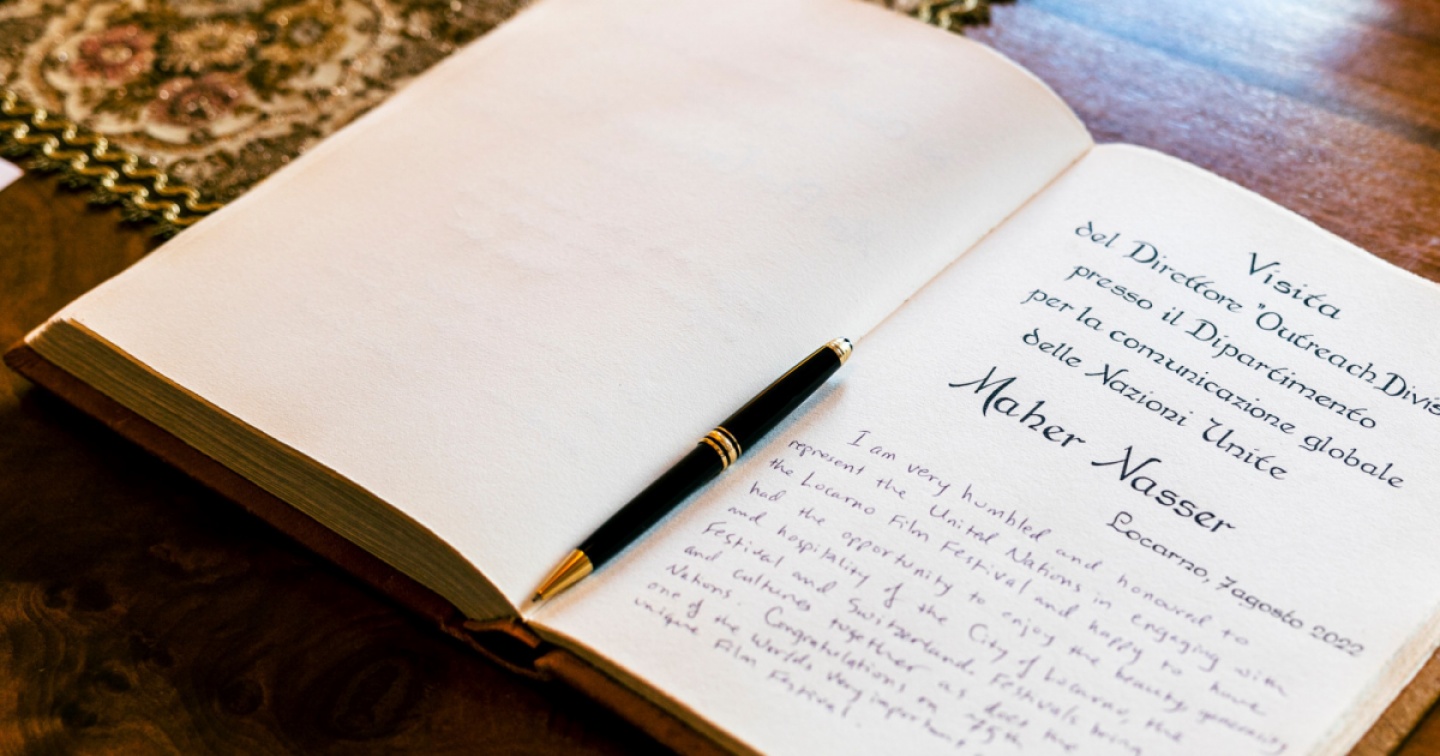 Visita
del Direttore "Outreach Divis
presso il Dipartimento
per la comunicazione globale
delle Nazioni Unite
Maher Nasser
Locarno, 7 agosto 2022
I am very humbled and honoured to
represent the United Nations in engaging with
the Locarno Film Festival and happy to have
had the opportunity to enjoy the beauty, generosity
and hospitality of the City of Locarno, the
Festival and Switzerland. Festivals bring
and cultures together as does the
Nations. Congratulations on 75th
one of the Worlds very important
unique Film Festival.